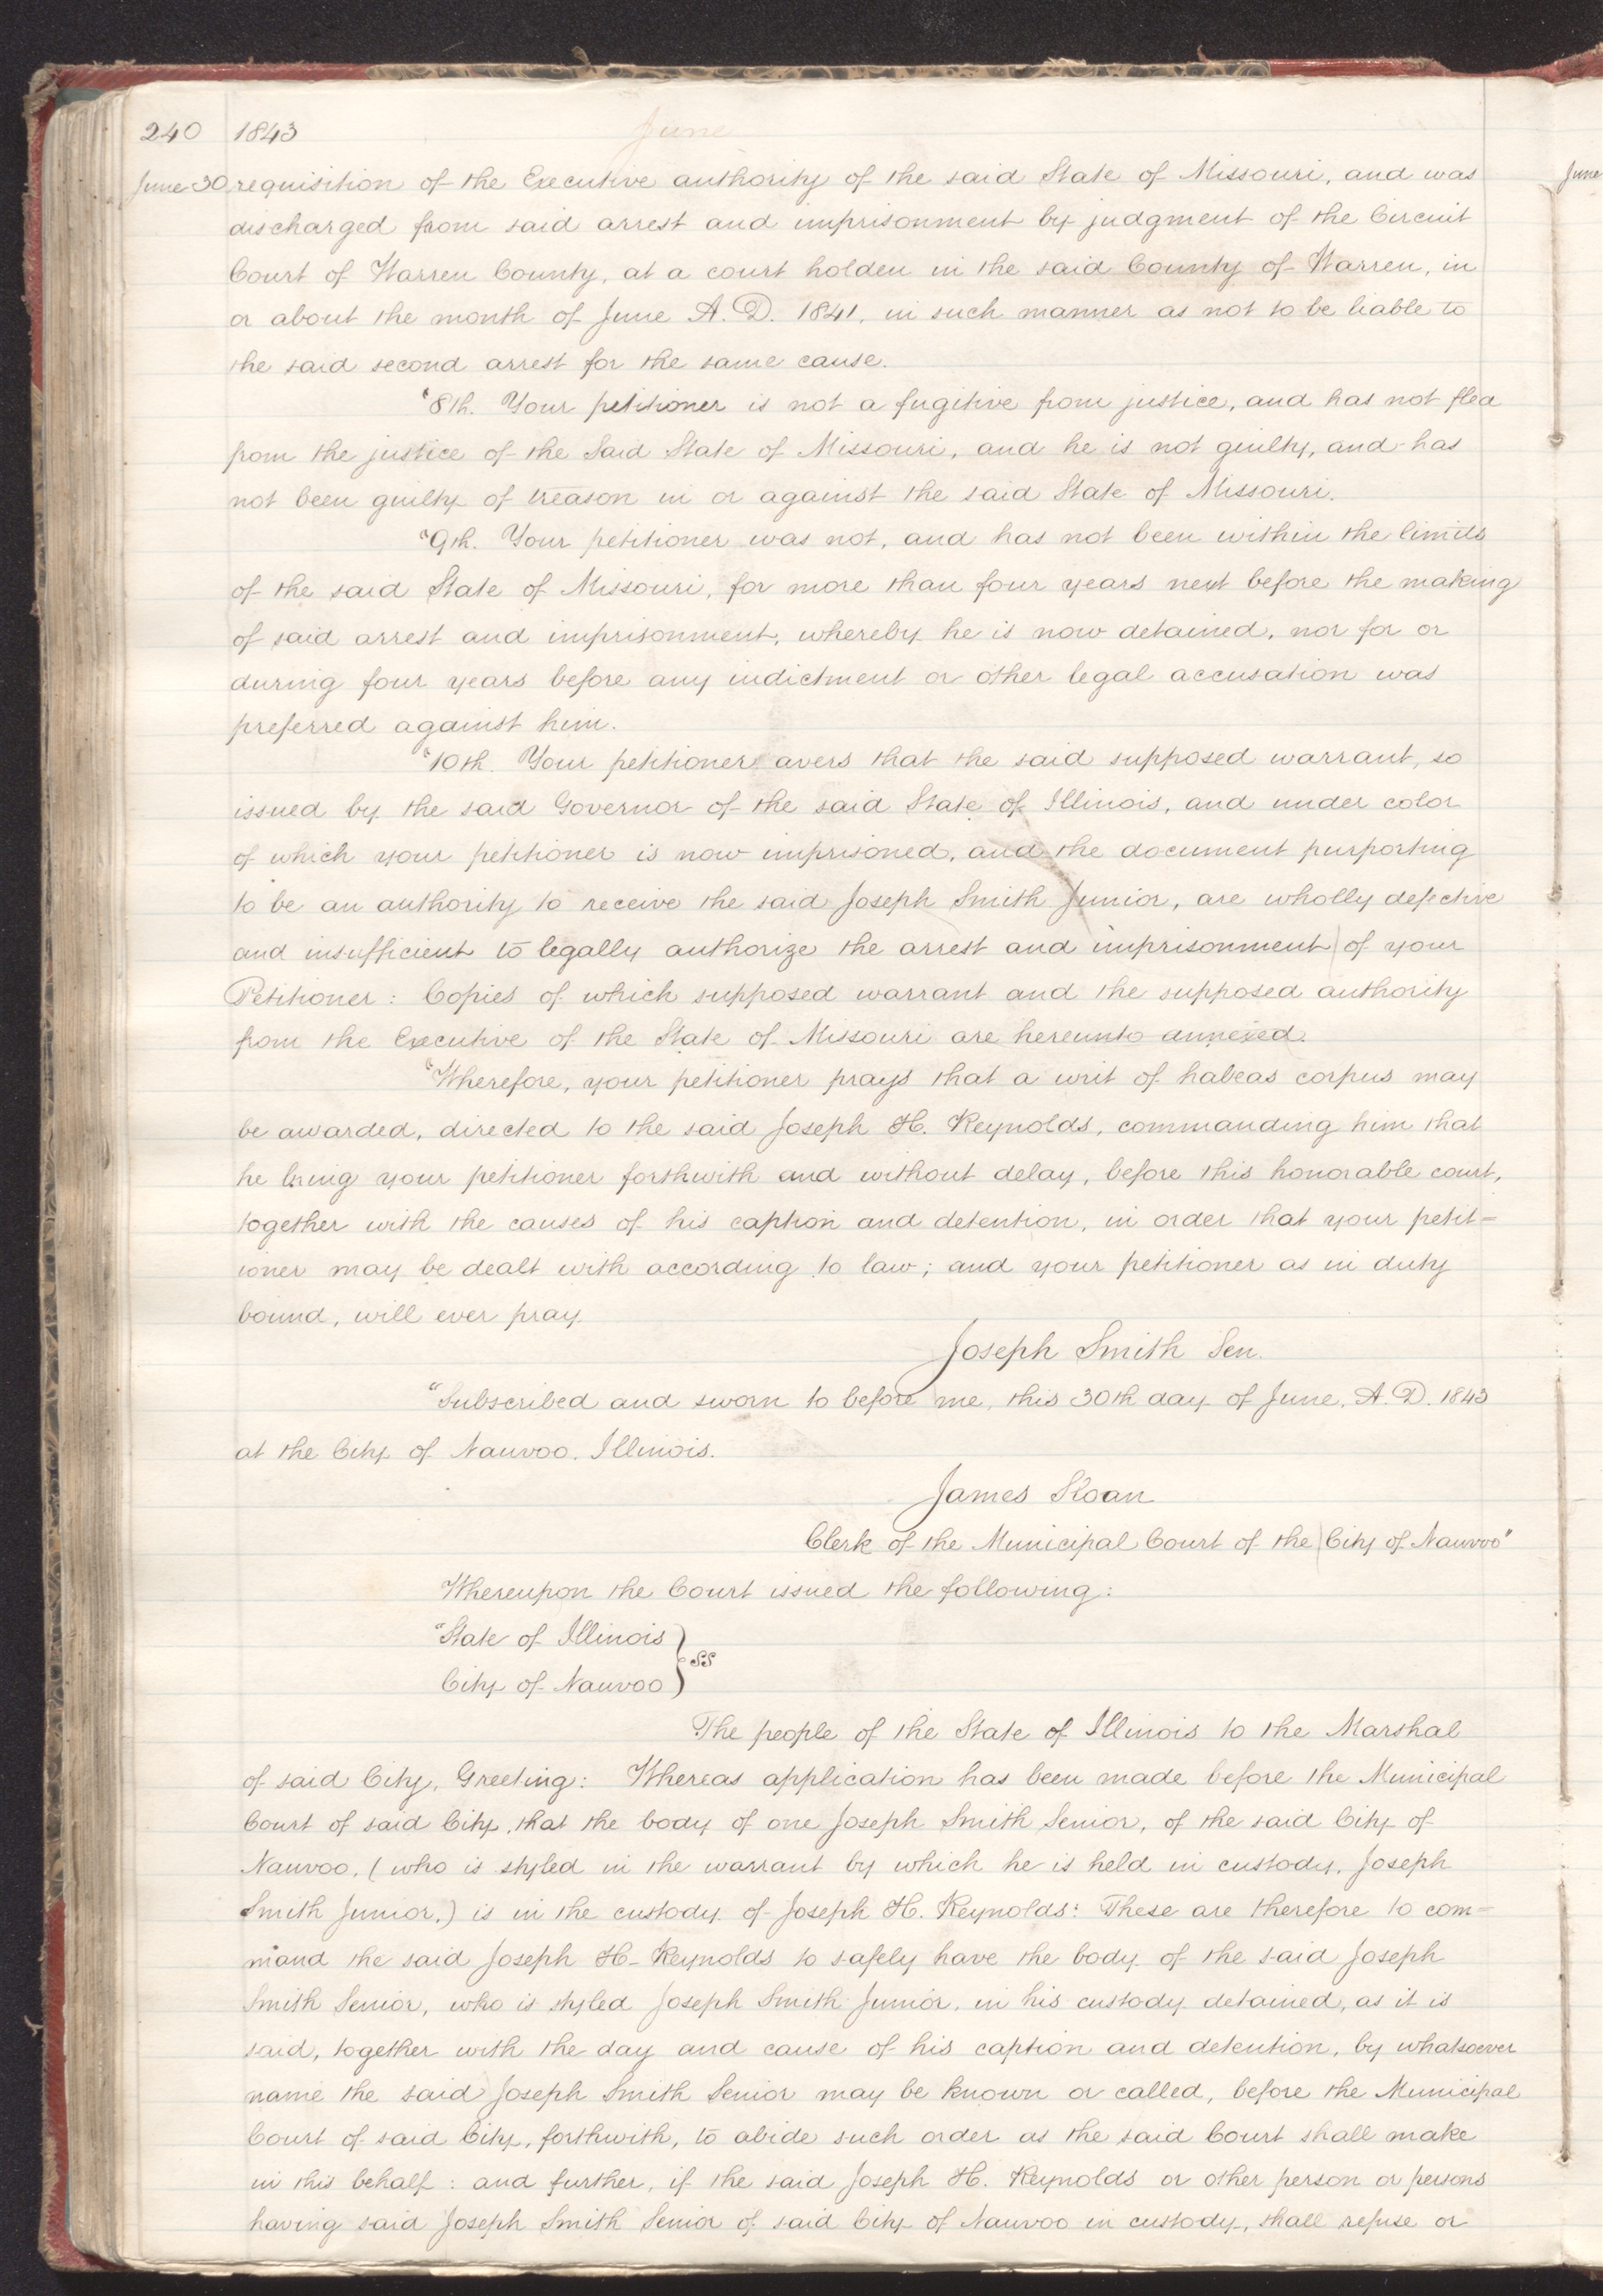 240 1843 June
June 30 requisition of the Executive authority of the said State of Missouri, and was
discharged from said arrest and imprisonment by judgment of the Circuit
Court of Warren County, at a court holden in the said County of Warren, in
or about the month of June A.D. 1841, in such manner as not to be liable to
the said second arrest for the same cause.
"8th. Your petitioner is not a fugitive from justice, and has not fled
from the justice of the Said State of Missouri, and he is not guilty, and has
not been guilty of treason in or against the said State of Missouri.
"9th. Your petitioner was not, and has not been within the limits
of the said State of Missouri, for more than four years next before the making
of said arrest and imprisonment, whereby he is now detained, nor for or
during four years before any indictment or other legal accusation was
preferred against him.
"10th. Your petitioner avers that the said supposed warrant, so
issued by the said Governor of the said State of Illinois, and under color
of which your petitioner is now imprisoned, and the document purporting
to be an authority to receive the said Joseph Smith Junior, are wholly defective
and insufficient to legally authorize the arrest and imprisonment of your
Petitioner: Copies of which supposed warrant and the supposed authority
from the Executive of the State of Missouri are hereunto annexed.
"Wherefore, your petitioner prays that a writ of habeas corpus may
be awarded, directed to the said Joseph H. Reynolds, commanding him that
he bring your petitioner forthwith and without delay, before this honorable court,
together with the causes of his caption and detention, in order that your petit=
ioner may be dealt with according to law; and your petitioner as in duty
bound, will ever pray.
Joseph Smith Sen.
"Subscribed and sworn to before me, this 30th day of June, A.D. 1843
at the City of Nauvoo, Illinois.
James Sloan
Clerk of the Municipal Court of the City of Nauvoo"
Whereupon the Court issued the following:
"State of Illinois }
City of Nauvoo } SS
The people of the State of Illinois to the Marshal
of said City, Greeting: Whereas application has been made before the Municipal
Court of said City, that the body of one Joseph Smith Senior, of the said City of
Nauvoo, (who is styled in the warrant by which he is held in custody, Joseph
Smith Junior,) is in the custody of Joseph H. Reynolds: These are therefore to com=
mand the said Joseph H. Reynolds to safely have the body of the said Joseph
Smith Senior, who is styled Joseph Smith Junior, in his custody detained, as it is
said, together with the day and cause of his caption and detention, by whatsoever
name the said Joseph Smith Senior may be known or called, before the Municipal
Court of said City, forthwith, to abide such order as the said Court shall make
in this behalf: and further, if the said Joseph H. Reynolds or other person or persons
having said Joseph Smith Senior of said City of Nauvoo in custody, shall refuse or
June